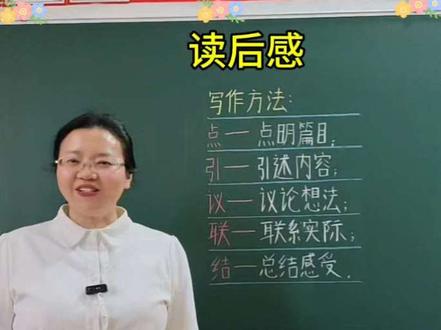 读后感
写作方法:
点一点明篇目;
引一引述内容;
议一议论想法;
联一联系实际;
结一总结感受.